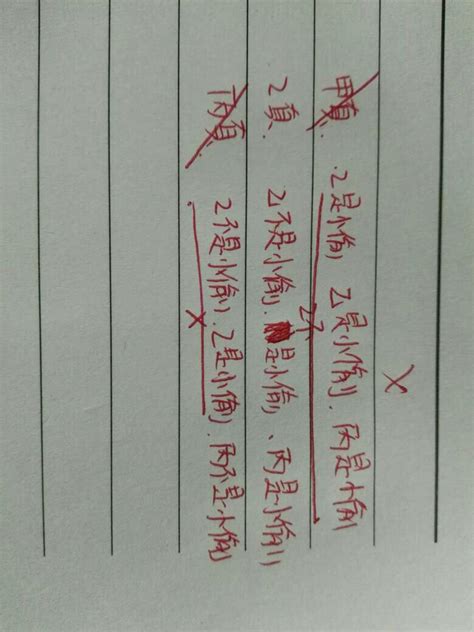 ×
甲真. 乙是小偷 乙是小偷. 丙是小偷
2个
乙真. 乙不是小偷. 是小偷、丙是小偷
丙真. 乙不是小偷. 乙是小偷. 丙不是小偷
×